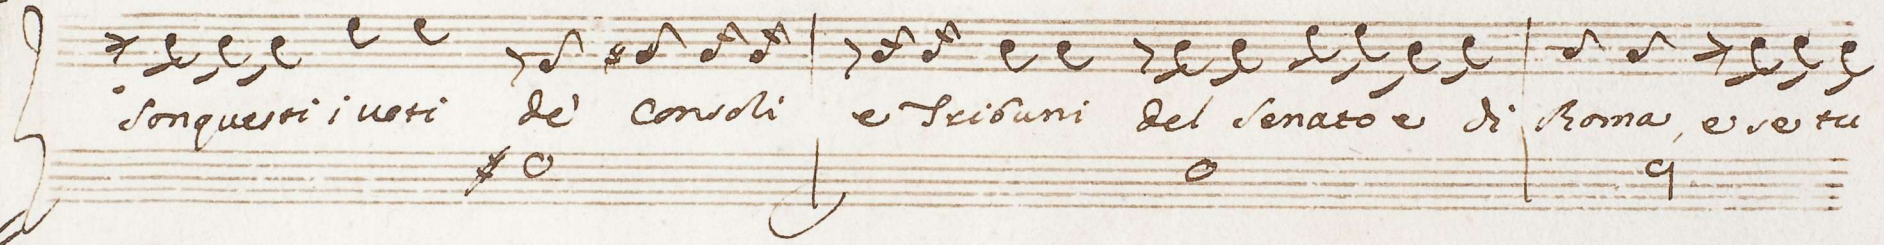 son questi i voti de' Consoli e Tribuni del Senato e di Roma, e se tu